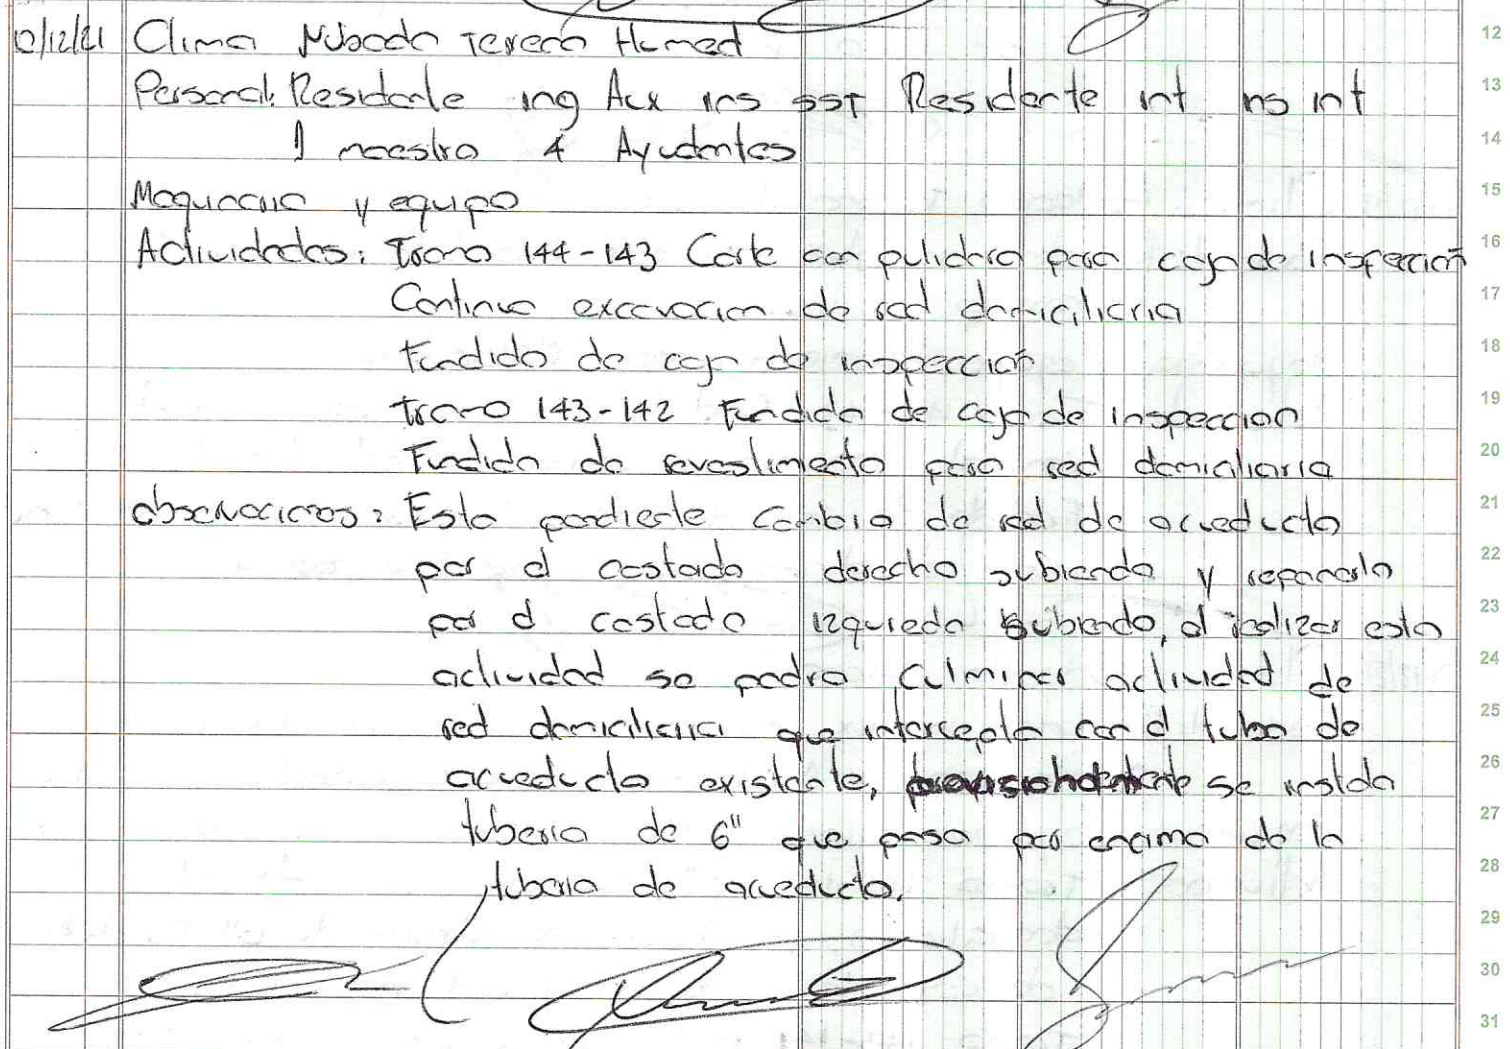 0/12/21 Clima Nublado Tereno Humed
12
Personal: Residente ing Aux ins SST Residente int ins int
13
1 maestro 4 Ayudantes
14
Maquinaria y equipo
15
Actividades: Tramo 144-143 Corte con pulidora para caja de inspección
16
Continua excavacion de red domiciliaria
17
Fundido de caja de inspección
18
tramo 143-142 Fundido de caja de inspeccion
19
Fundido de revestimiento para red domiciliaria
20
observaciones: Esta pendiente cambio de red de acueducto
21
por el costado derecho subiendo y repararlo
22
por el costado izquiedo subiendo, al realizar esta
23
actividad se podra culminar actividad de
24
red domiciliaria que intercepta con el tubo de
25
acueducto existente, se instala
26
tuberia de 6" que pasa por encima de la
27
tuberia de acueducto.
28
29
30
31